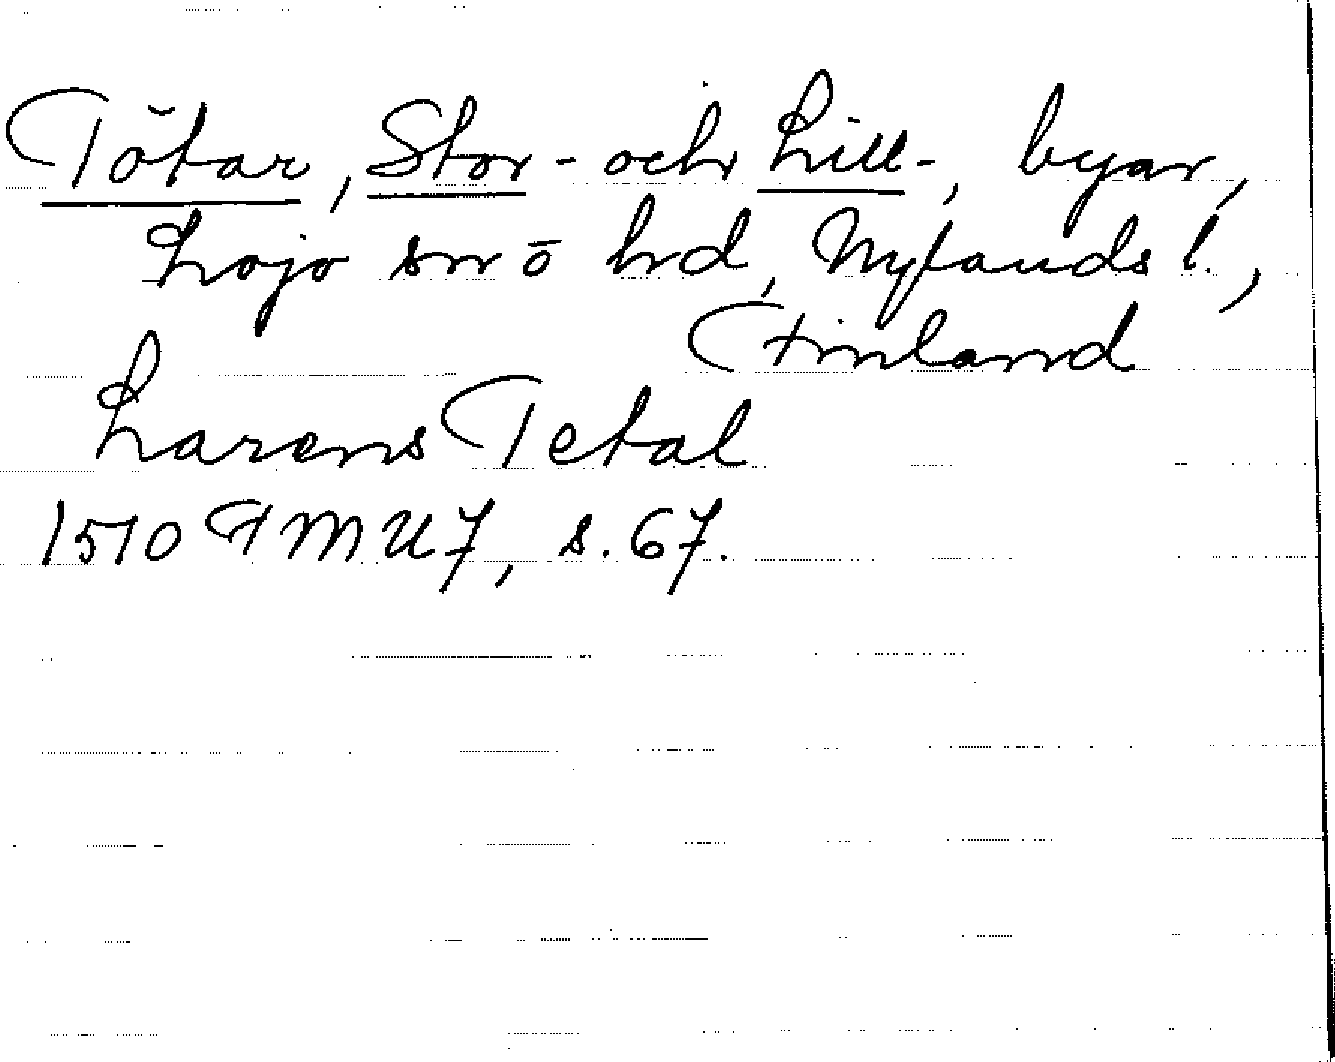 Tötar, Stor- och Lill-, byar,
Lojo sn o hd, Nylands l.,
Finland
Larens Tetal
1510 FMU 7, s. 67.